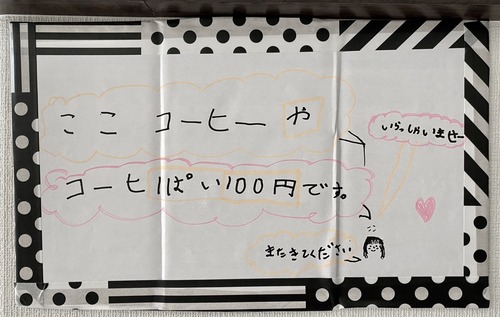 ここ コーヒーや
いらっしゃいませー
コーヒ1ぱい100円です。
またきてください